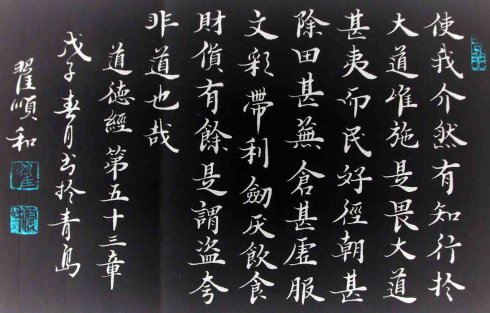 使我介然有知行於
大道惟施是畏大道
甚夷而民好徑朝甚
除田甚蕪倉甚虛服
文彩帶利劍厌飲食
財貨有餘是謂盗夸
非道也哉
道德經第五十三章
戊子春月书於青島
翟順和